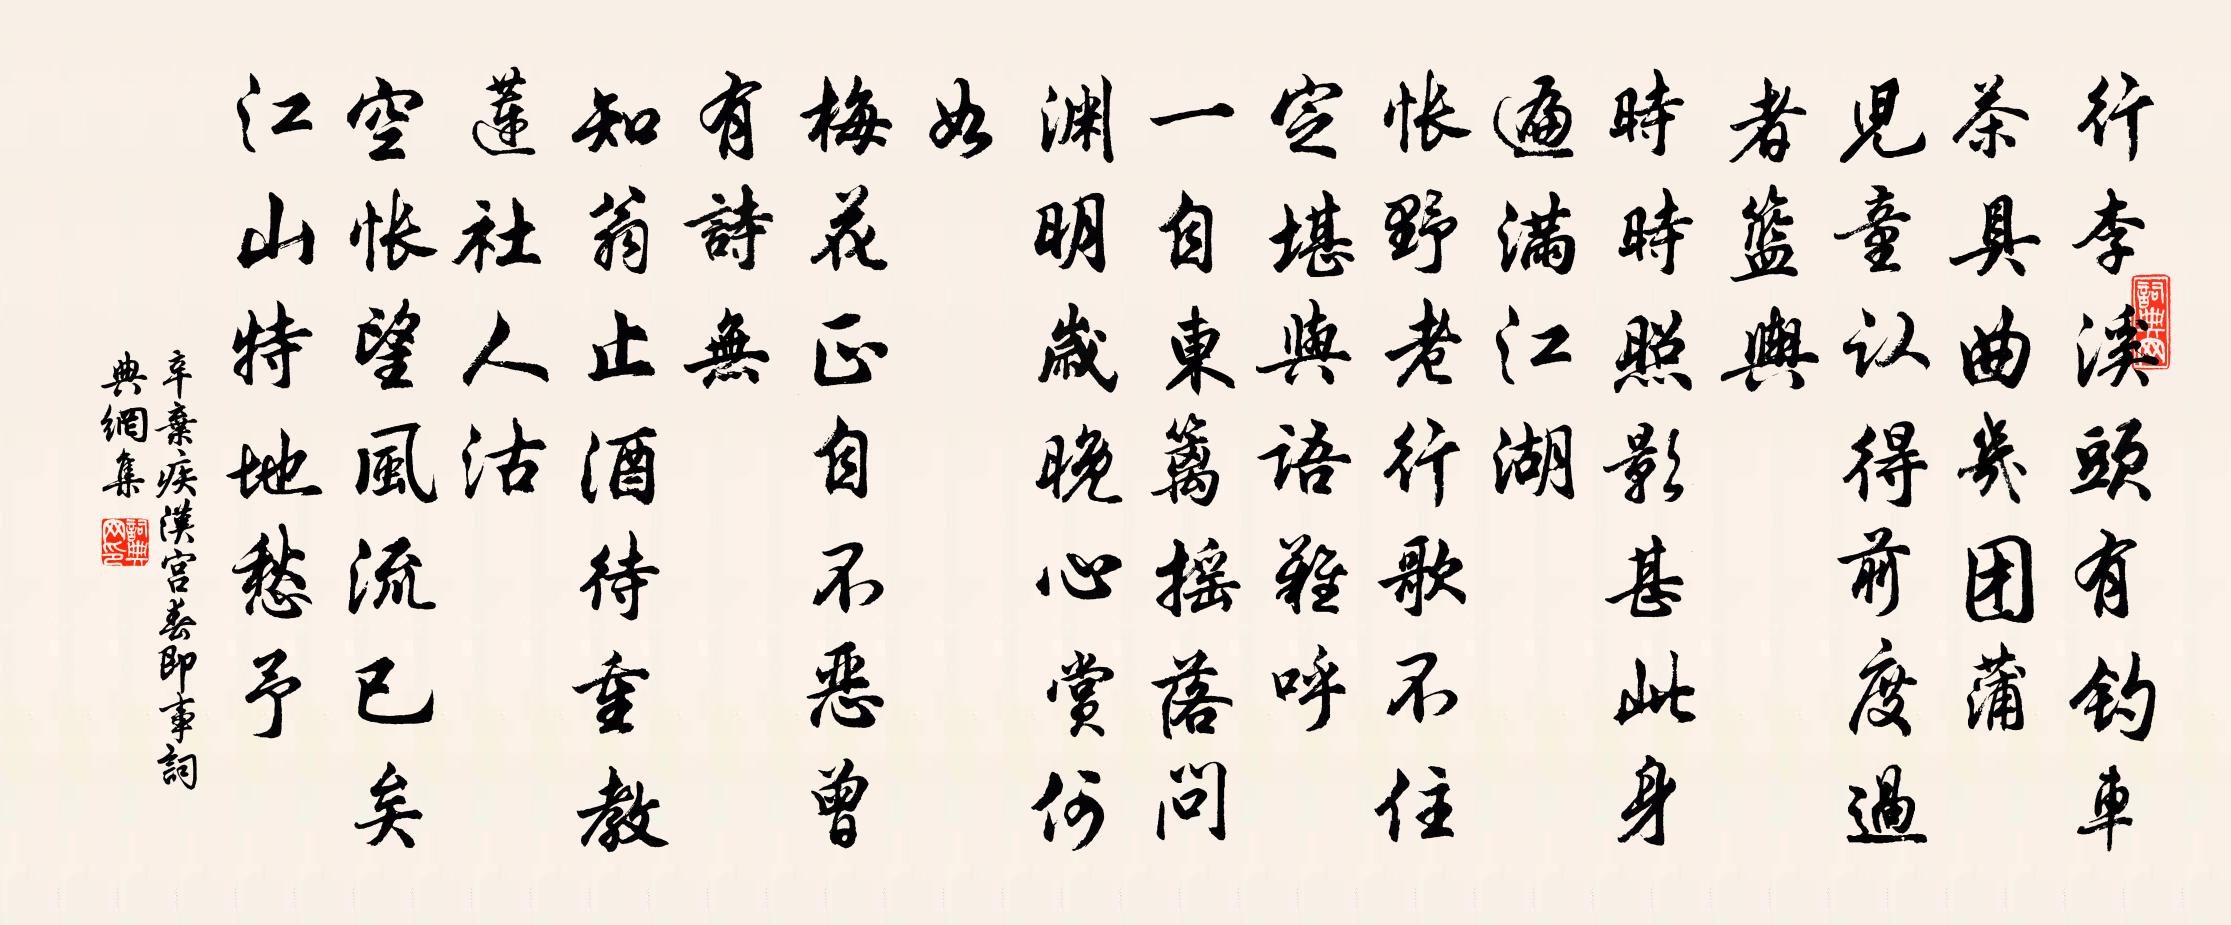 行李溪頭有釣車
茶具曲幾团蒲
児童认得前度過
者籃輿
時時照影甚此身
遍满江湖
怅野老行歌不住
定堪與語難呼
一自東篱摇落問
渊明歲晚心赏何
如
梅花正自不惡曾
有詩無
知翁止酒待重教
蓮社人沽
空怅望風流已矣
江山特地愁予
辛棄疾漢宮春即事詞
典網集
詞典网
詞典网印